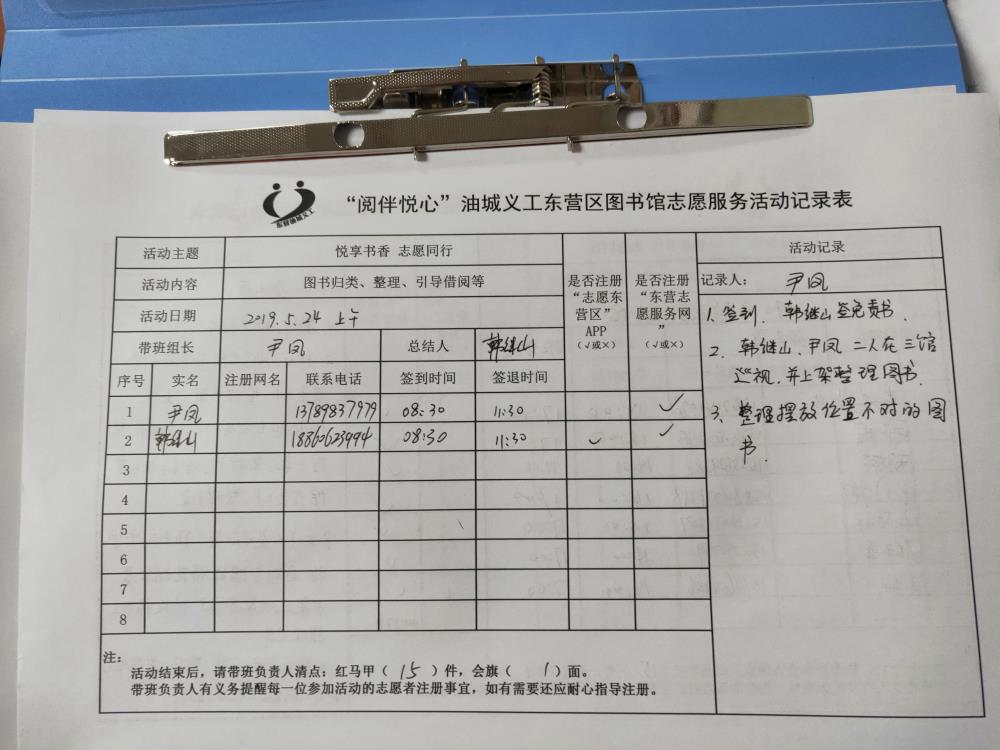 东营油城义工
“阅伴悦心”油城义工东营区图书馆志愿服务活动记录表
活动主题 悦享书香 志愿同行
活动内容 图书归类、整理、引导借阅等
活动日期 2019.5.24 上午
带班组长 尹凤 总结人 韩继山
是否注册“志愿东营区”APP（√或×）
是否注册“东营志愿服务网”（√或×）
活动记录
记录人： 尹凤
1、签到、韩继山签免责书、
2、韩继山、尹凤二人在三馆
巡视，并上架整理图书、
3、整理摆放位置不对的图
书.
序号 实名 注册网名 联系电话 签到时间 签退时间
1 尹凤 13789837979 08:30 11:30 ✓
2 韩继山 18860623994 08:30 11:30 ✓ ✓
3
4
5
6
7
8
注：
活动结束后，请带班负责人清点：红马甲（ 15 ）件，会旗（ 1 ）面。
带班负责人有义务提醒每一位参加活动的志愿者注册事宜，如有需要还应耐心指导注册。